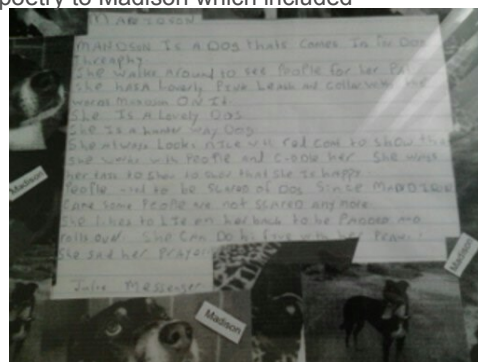 poetry to Madison which included
MARDISON
MARDSIN IS A DOG thats Comes In for DOG
threaphy
She walks Around to see People for her Pat
She has A Loverly Pink Leash and Coller with the
words Madison ON It
She Is A Lovely Dog
She Is A Way Dog
She Always Looks Nice with red Coat to show that
She works with People and C-ddle her She wags
her tale to show to show that She is happy
People used to be Scared of Dog Since
Came Some People are not scared any more
She likes to Lie on her back to be Padded and
rolls over She Can Do hi five with her Peaw
She sad her Prayers
Julie Messenger
Madison
Madison
Madison